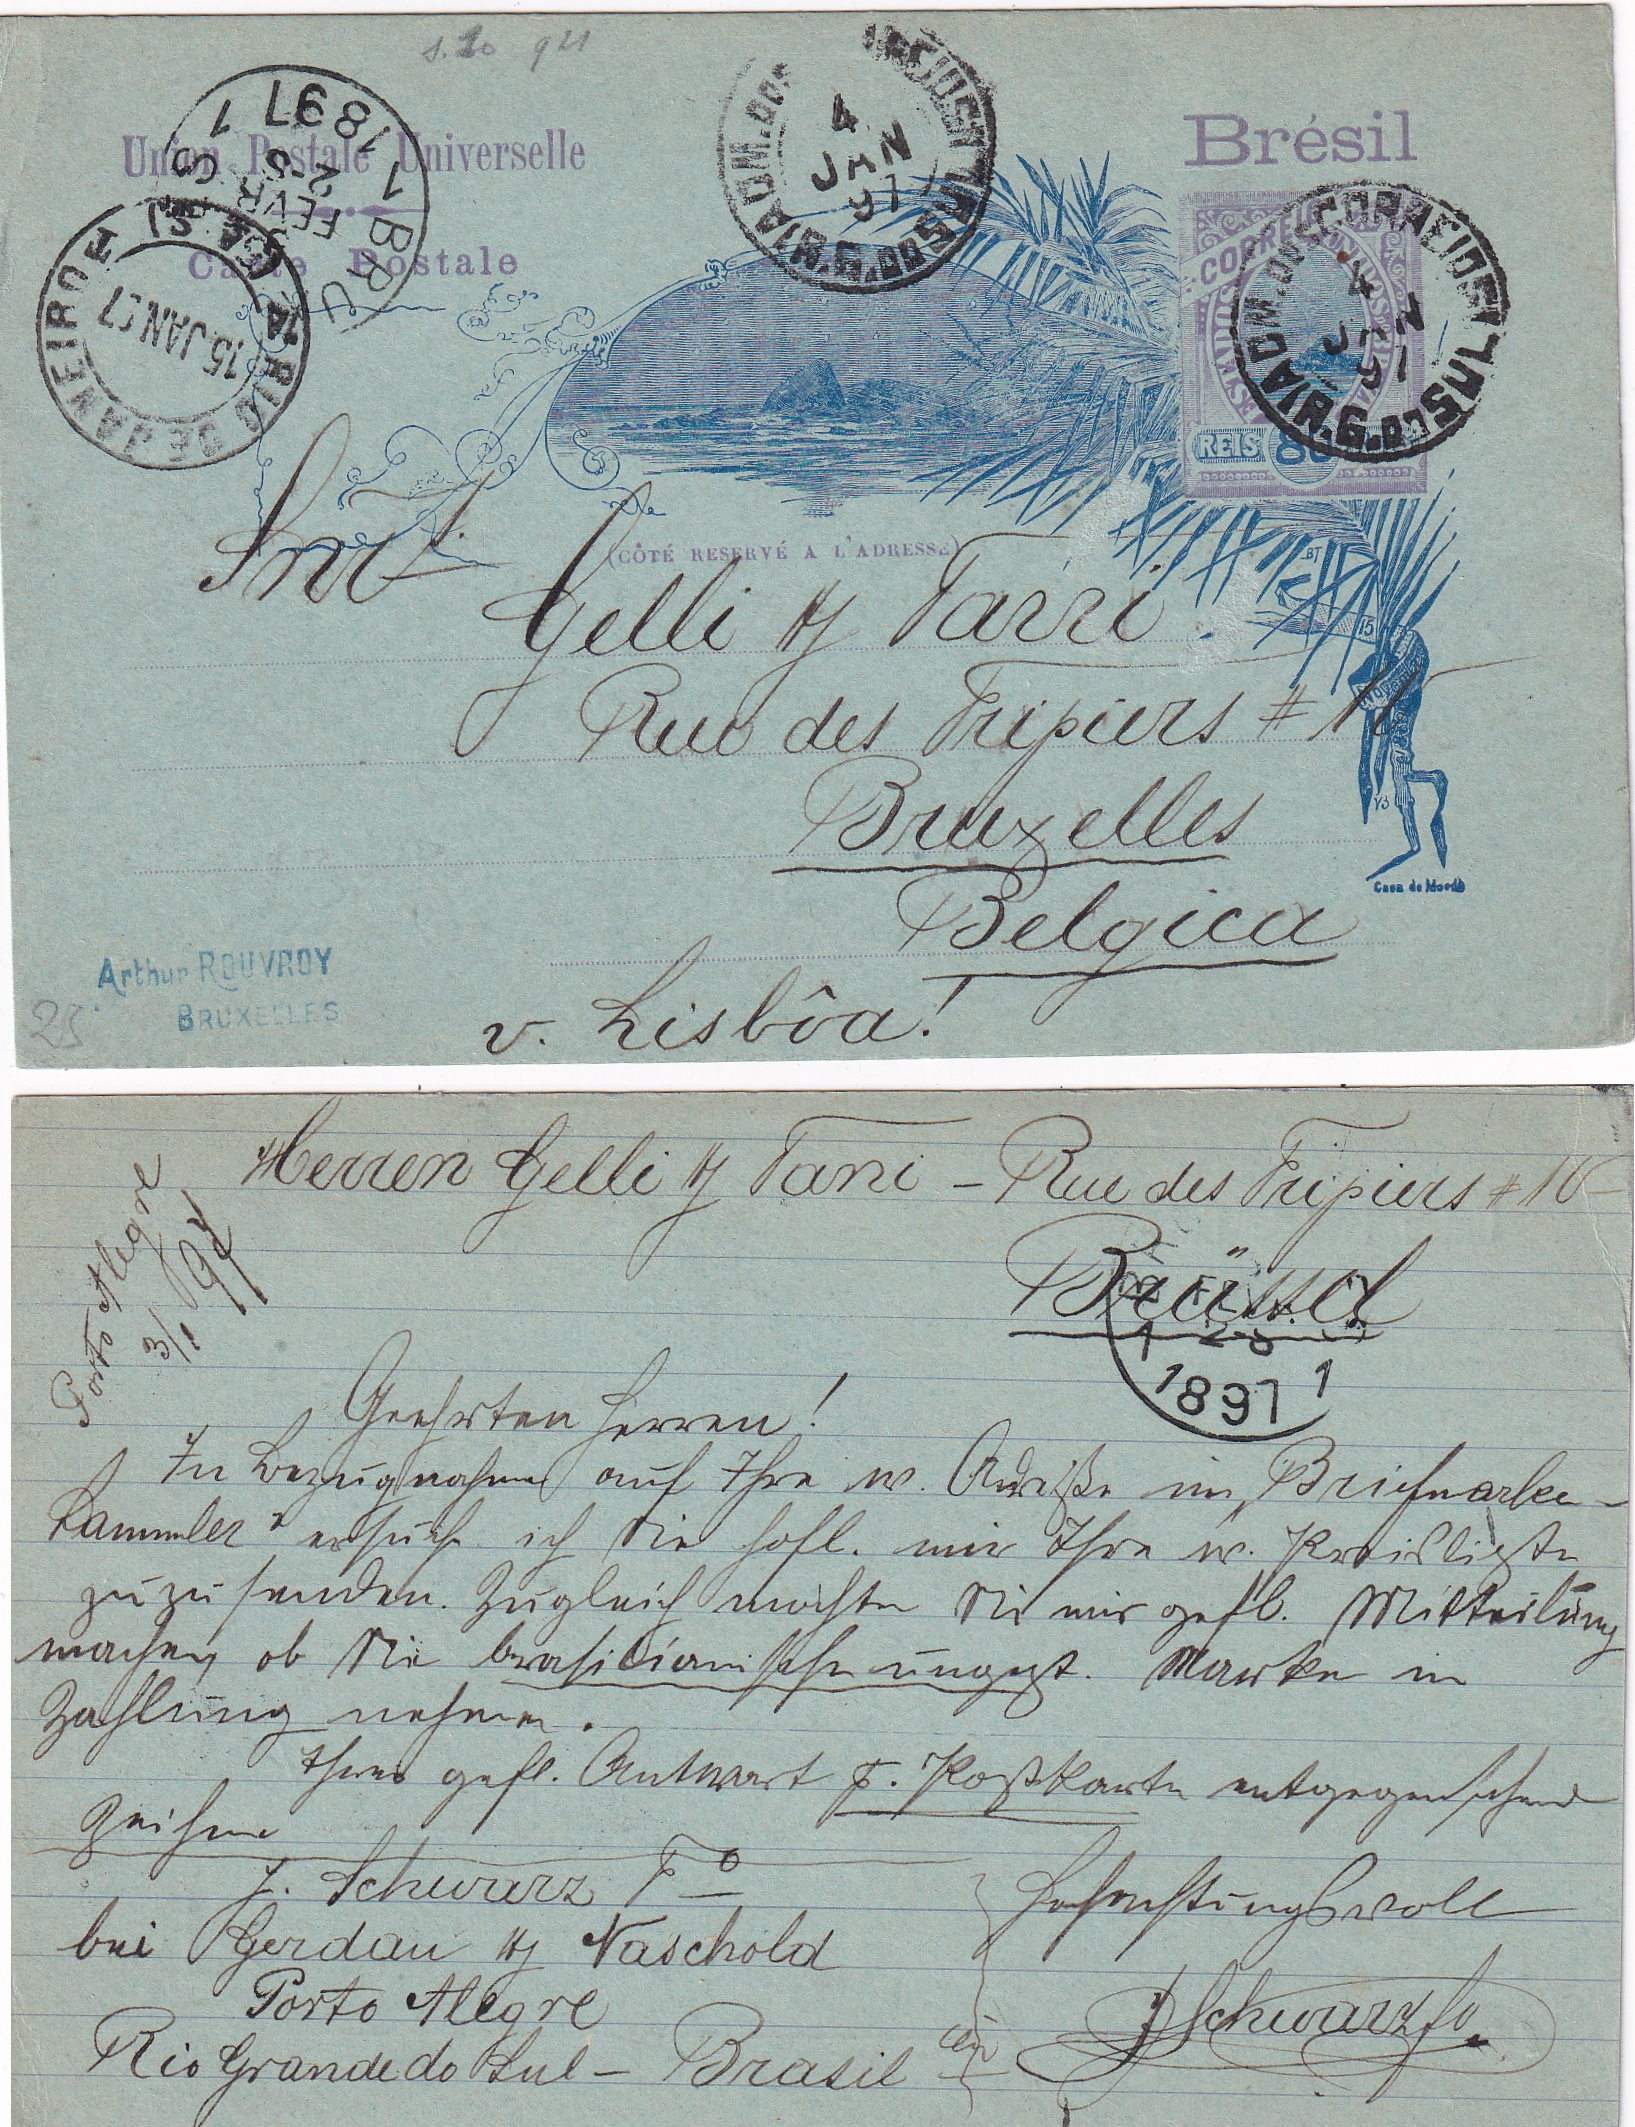 1.20 921
Union Postale Universelle
Carte Postale
Brésil
CORREIO
REIS 80
ADM. DOS CORREIOS
4
JAN
97
R. G. DO SUL
ADM. DOS CORREIOS
4
JAN
97
R. G. DO SUL
1 BRU
FEVR
2-S
1897
1
RIO DE JANEIRO
15 JAN 97
(CÔTÉ RESERVÉ A L'ADRESSE)
Snrs
Gelli & Tani.
Rue des Fripiers # 16
Bruxelles
Belgica
v. Lisbôa!
15
Novembro
Casa da Moeda
Arthur ROUVROY
BRUXELLES
25
Herren Gelli & Tani – Rue des Fripiers # 16
Brüssel
Porto Alegre
3/1 97
1 2-S
1897 1
Geehrten Herren!
In Bezugnahme auf Ihre w. Adreße im „Briefmarken-
Sammler" ersuche ich Sie höfl. mir Ihre w. Preisliste
zuzusenden. Zugleich möchten Sie mir gefl. Mitteilung
machen ob Sie brasilianische ungezt. Marken in
Zahlung nehmen.
Ihrer gefl. Antwort p. Postkarte entgegensehend
zeichne
J. Schwarz Fo
bei Gerdau & Naschold
Porto Alegre
Rio Grande do Sul – Brasil
Hochachtungsvoll
J Schwarz fo.